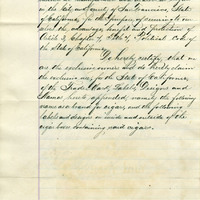 in the City and County of San Francisco, State
of California, for the purpose of securing to our
selves the advantage, benefit and protection of
Article 3, Chapter 7, Title 7, Political Code of
the State of California,
Do hereby certify, that we
are the exclusive owner and do hereby claim
the exclusive use for the State of California,
of the Trade Mark, Labels, Designs and
Name hereto appended, namely the following
name as a brand for cigars, and the following
labels and designs on inside and outside of the
cigar boxes containing said cigars.